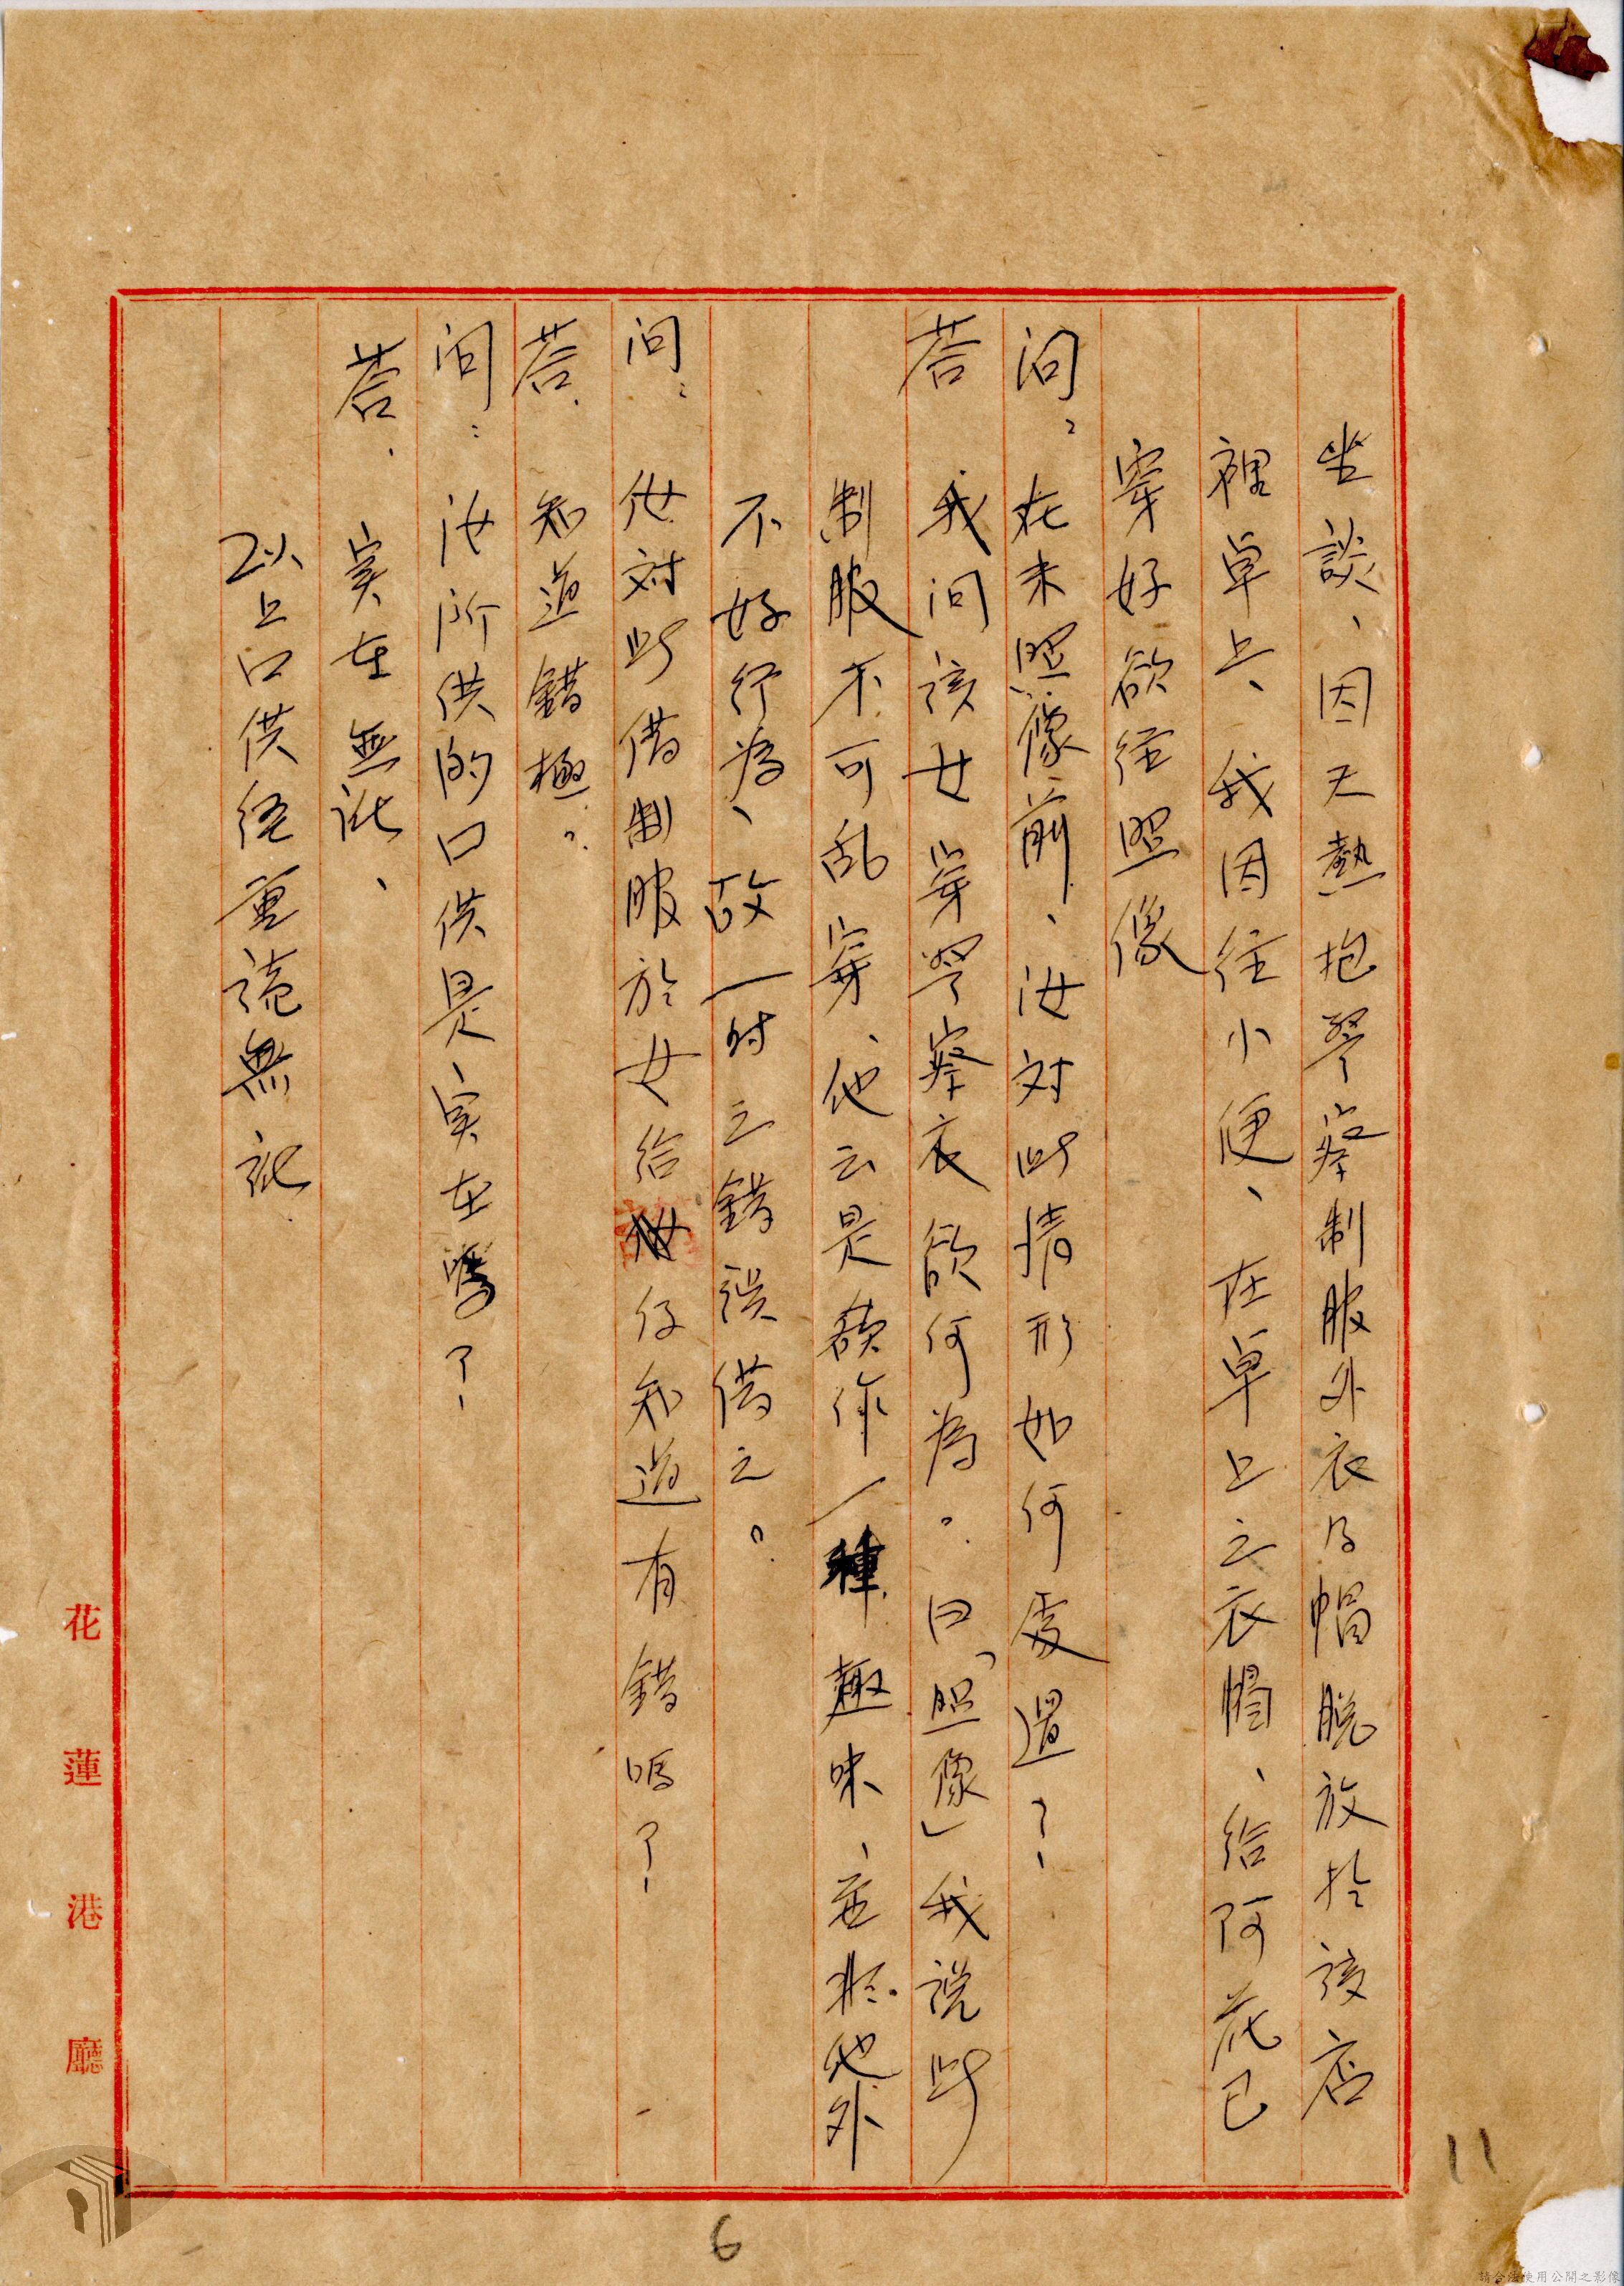 坐談、因天熱抱警察制服外衣及帽脫放於該店
裡卓上、我因往小便、在卓上之衣帽、給阿花已
穿好欲往照像
问：在未照像前、汝対此情形如何處置？
荅 我问该女穿警察衣欲何為。曰「照像」我说此
制服不可乱穿、他云是欲作一種趣味、並非他外
不好行為、故一时之錯誤借之。
问： 他対此借制服於女给仔知道有錯嗎？
荅. 知道錯極。
问： 汝所供的口供是实在嗎？
荅. 実在無訛、
以上口供经重读無訛
花蓮港廳
6
11
請合法使用公開之影像